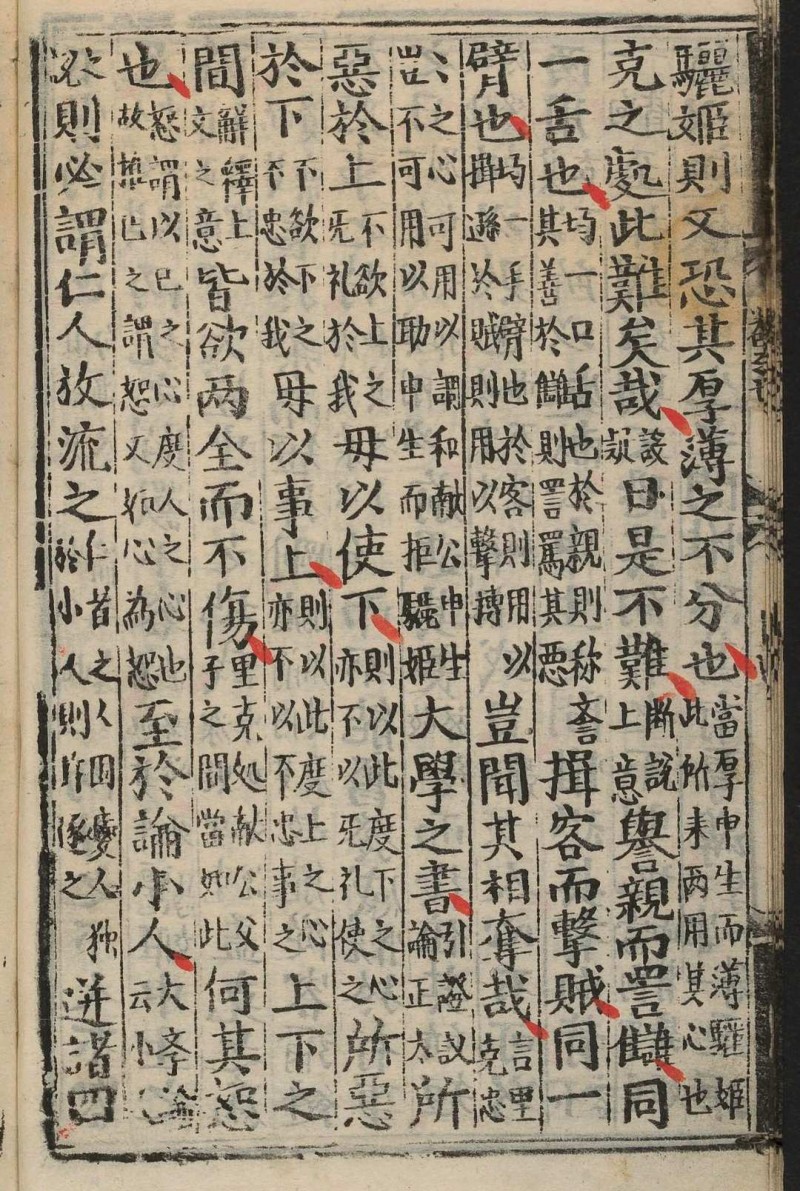 驪姬則又恐其厚薄之不分也當厚申生而薄驪姬此所未两用其心也
克之處此難矣哉設疑曰是不難断說上意譽親而詈讎同
一舌也均一口舌也於親則称誉其善於讎則詈罵其悪揖客而擊賊同一
臂也均一手臂也於客則用以揖遜於賊則用以擊摶豈聞其相奪哉言里克忠
〻之心可用以謂和献公申生豈不可用以助申生而拒驪姬大學之書引證議論正太所
惡於上不欲上之无礼於我毋以使下則以此度下之心亦不以无礼使之所惡
於下不欲下之不忠於我毋以事上則以此度上之心亦不以不忠事之上下之
間解釋上文之意皆欲两全而不傷里克処献公父子之間當如此何其恕
也恕謂以己之心度人之心也故推己之謂恕又如心為恕至於論小人大孝論云小人
則必謂仁人放流之仁者之人因愛人独於小人則斥逐之迸諸四